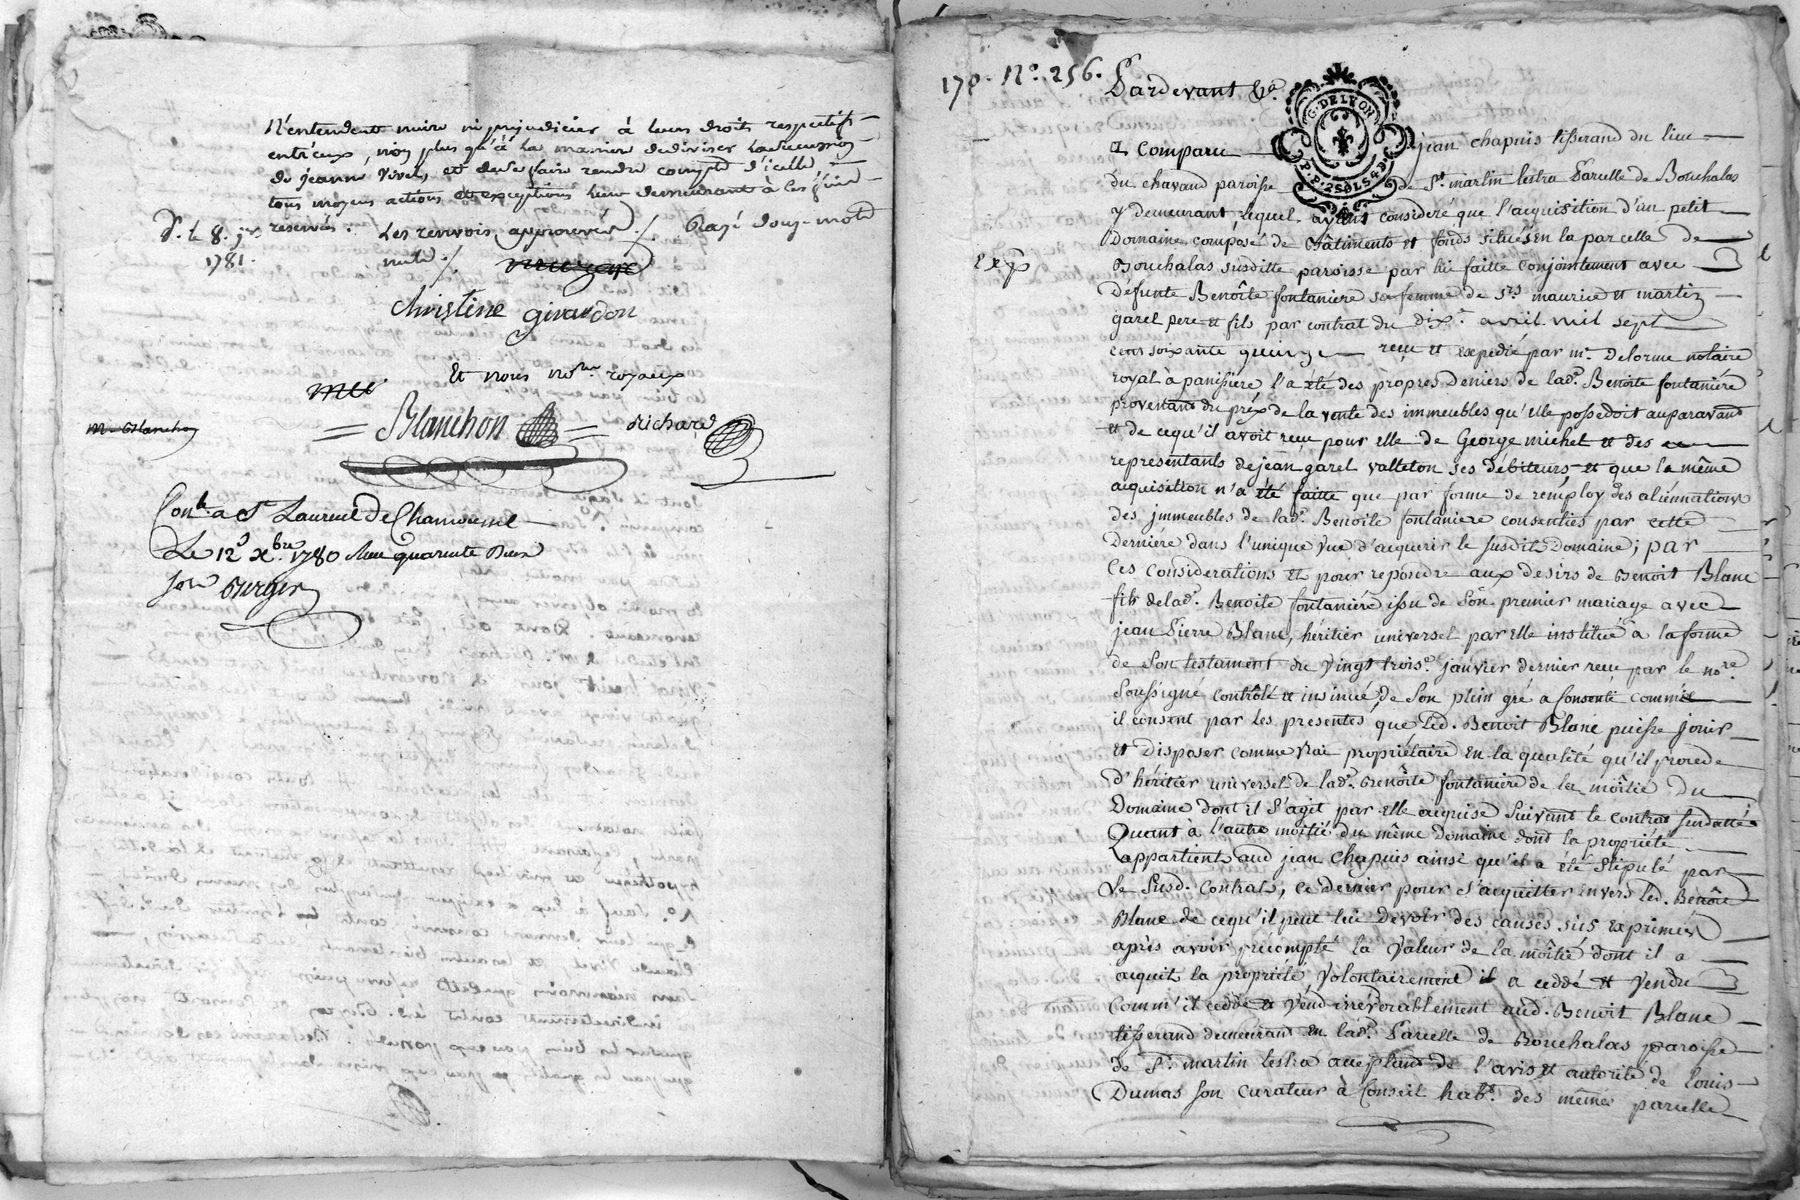 N'entendent nuire ni prejudicier à leurs droits respectifs
entr'eux, non plus qu'à la maniere de diviser la succession
de jeanne Vivel, et de se faire rendre compte d'icelle
tous moyens actions et exceptions leur demeurant à ces fins
reservés. Les renvois approuvés. / Rayé douze mots
nuls. /
D. le 8. jr
1781.
Christine girardon
Et nous nores royaux
Blanchon Richard
Conlé a St Laurent De Chamousset
Le 12e xbre 1780 Reçu quarante Deux
sols Berger
178. No. 256. Pardevant &c.
G. DE LYON
P. P. 2 SOLS 4 D
a comparu jean chapuis tisserand du lieu
du chavand paroisse de St. martin lestra Parcelle de Bouchalas
y demeurant lequel ayant consideré que l'acquisition d'un petit
Domaine composé de Bâtiments et fonds situés en la parcelle de
Bouchalas susditte paroisse par lui faitte conjointement avec
exp
Défunte Benoîte fontaniere sa femme de Srs maurice et martin
garel pere et fils par contrat du dixe. avril mil sept
cens soixante quinze reçu et expedié par me. Delorme notaire
royal à panissiere l'a été des propres deniers de lade. Benoîte fontaniére
provenants du prix de la vente des immeubles qu'elle possedoit auparavant
et de cequ'il avoit reçu pour elle de George michel et des
representants de jean garel valleton ses débiteurs et que la même
acquisition n'a été faitte que par forme de remploy des aliénnations
des immeubles de lade. Benoîte fontaniere consenties par cette
derniere dans l'unique vue d'acquerir le susdit Domaine; par
ces considerations et pour repondre aux desirs de Benoit Blanc
fils de lade. Benoîte fontaniére issu de son premier mariage avec
jean Pierre Blanc, héritier universel par elle institué à la forme
de son testament du vingt troise. janvier dernier reçu par le nore.
soussigné contrôlé et insinué, de son plein gré a consenti comme
il consent par les presentes que led. Benoit Blanc puisse jouir
et disposer comme vrai propriétaire en la qualité qu'il procede
d'héritier universel de lade. Benoîte fontaniere de la môitié du
Domaine dont il s'agit par elle acquise suivant le contrat susdatté
Quant à l'autre moitié du même domaine dont la propriété
appartient aud jean Chapuis ainsi qu'il a été stipulé par
le susd. contrat, ce dernier pour s'acquitter envers led. Benoit
Blanc de cequ'il peut lui devoir des causes sus exprimées
après avoir précompté la valeur de la moîtié dont il a
acquit la propriété, volontairement il a ceddé et vendu
comm'il cedde et vend irrévocablement aud. Benoit Blanc
tisserand demeurant en lade. Parcelle de Bouchalas paroisse
de St. martin lestra acceptant de l'avis et autorité de louis
Dumas son curateur à conseil habt. des même parcelle